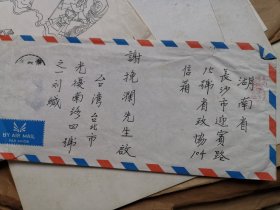 湖南省
長沙市迎賓路
15號省政協104
信箱
謝挽瀾先生啟
台湾台北市
光復南路四號
之一刘緘
BY AIR MAIL
PAR AVION